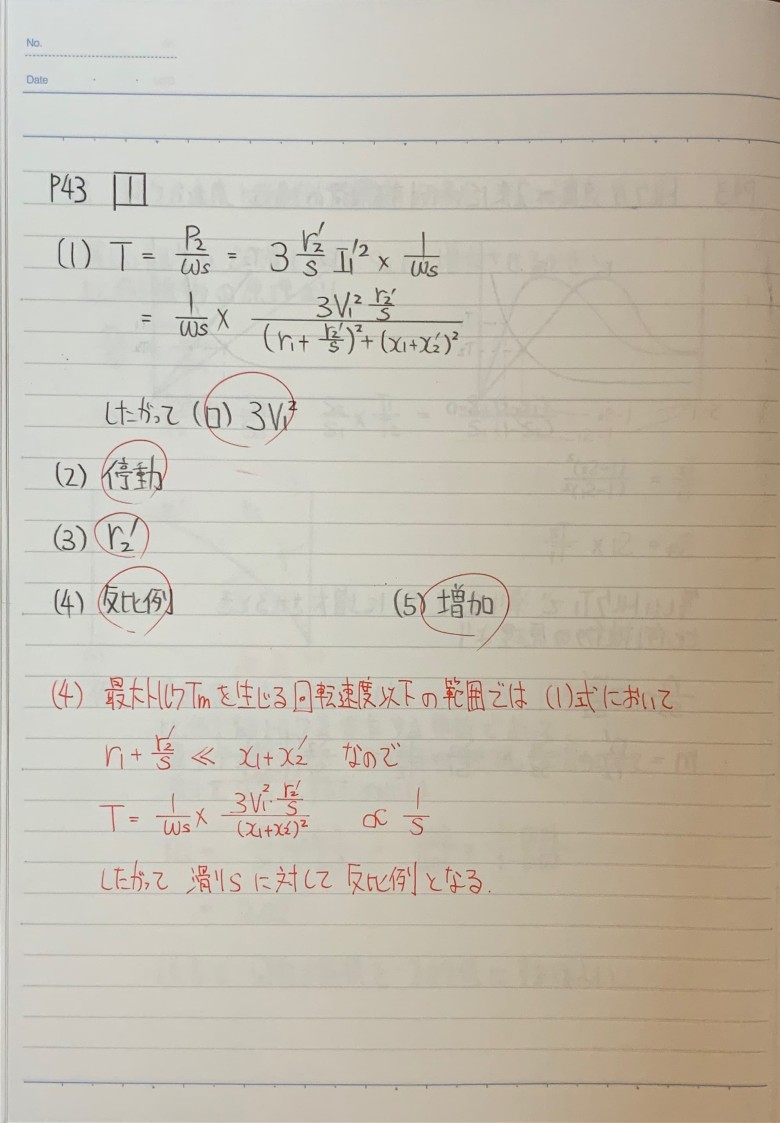 No.
Date
P43 1
(1) T = P₂/ωs = 3 r₂′/s I₁′² × 1/ωs
= 1/ωs × 3V₁² r₂′/s / (r₁ + r₂′/s)² + (x₁+x₂′)²
したがって (ロ) 3V₁²
(2) 停動
(3) r₂′
(4) 反比例 (5) 増加
(4) 最大トルクTmを生じる回転速度以下の範囲では (1)式において
r₁ + r₂′/s ≪ x₁+x₂′ なので
T = 1/ωs × 3V₁²· r₂′/s / (x₁+x₂′)² ∝ 1/s
したがって 滑りsに対して 反比例となる.